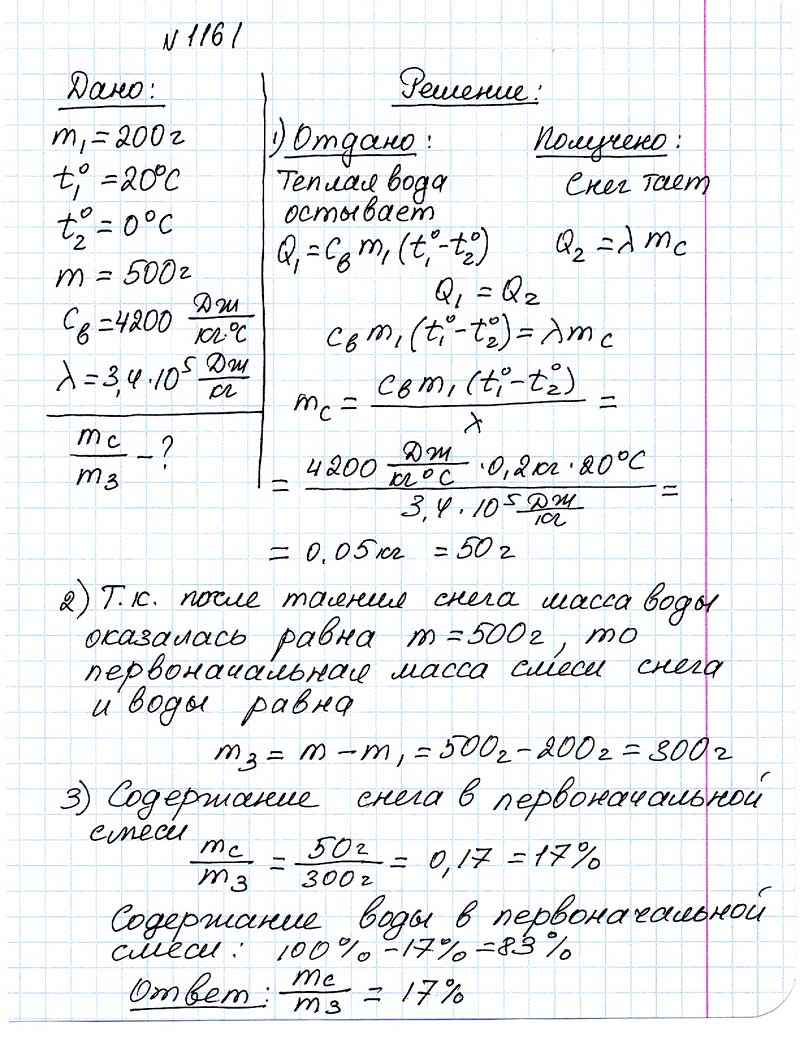 №1161
Дано:
m₁=200г
t₁°=20°C
t₂°=0°C
m=500г
cв=4200 Дж/кг·°C
λ=3,4·10⁵ Дж/кг
mс/m₃ - ?
Решение:
1) Отдано: Получено:
Теплая вода Снег тает
остывает
Q₁=cвm₁(t₁°-t₂°) Q₂=λmс
Q₁=Q₂
cвm₁(t₁°-t₂°)=λmс
mс = cвm₁(t₁°-t₂°)/λ =
= 4200 Дж/кг°C ·0,2кг·20°C / 3,4·10⁵ Дж/кг =
= 0,05кг = 50г
2) Т.к. после таяния снега масса воды
оказалась равна m=500г, то
первоначальная масса смеси снега
и воды равна
m₃ = m - m₁ = 500г - 200г = 300г
3) Содержание снега в первоначальной
смеси
mс/m₃ = 50г/300г = 0,17 = 17%
Содержание воды в первоначальной
смеси: 100% - 17% = 83%
Ответ: mс/m₃ = 17%